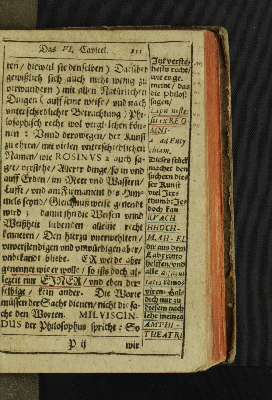 Das VI. Capitel. 211
ren / dieweil sie denselben) Darüber
gewißlich sich auch nicht wenig zu
verwundern) mit allen Natürlichen
Dingen (auff seine weise / und nach
unterschiedlicher Betrachtung) Phi-
losophisch recht wol verglichen kön-
nen: Unnd derowegen / der Kunst
zu ehren / mit vielen unterschiedlichen
Namen / wie ROSINUS auch sa-
get / verstehe / Allerer dinge / so in und
auff Erden / im Meer und Wassern /
Lufft / und am Firmament deß Him-
mels seynd / Gleichnuß weise genennt
wird: damit ihn die Weisen unnd
Weißheit liebenden alleine recht
kenneten / Den hierzu unerwehlten /
unverständigen und unwürdigen aber /
unbekandt bliebe. ER werde aber
genennet wie er wolle / so ists doch al-
lezeit nur EINER / und eben der-
selbige / kein ander. Die Worte
müssen der Sache dienen / nicht die sa-
che den Worten. MILVISCIN-
DUS der Philosophus spricht: So
P ij wir
Jetzt verste-
hestu recht /
wie es ge-
meine / das
die Philoso-
sagen /
Lapis noster
fit ex RE O-
MNI.
Dieses stück
machet den
suchern die-
ser Kunst
viel Jrr-
thumb: Je-
doch kan
HYACH
HHOCH-
MAH-EL
dir aus dem
Labyrinto
helffen / und
alle
doch nur zu
diesem nach
lehr meines
AMPHI-
THEATRI